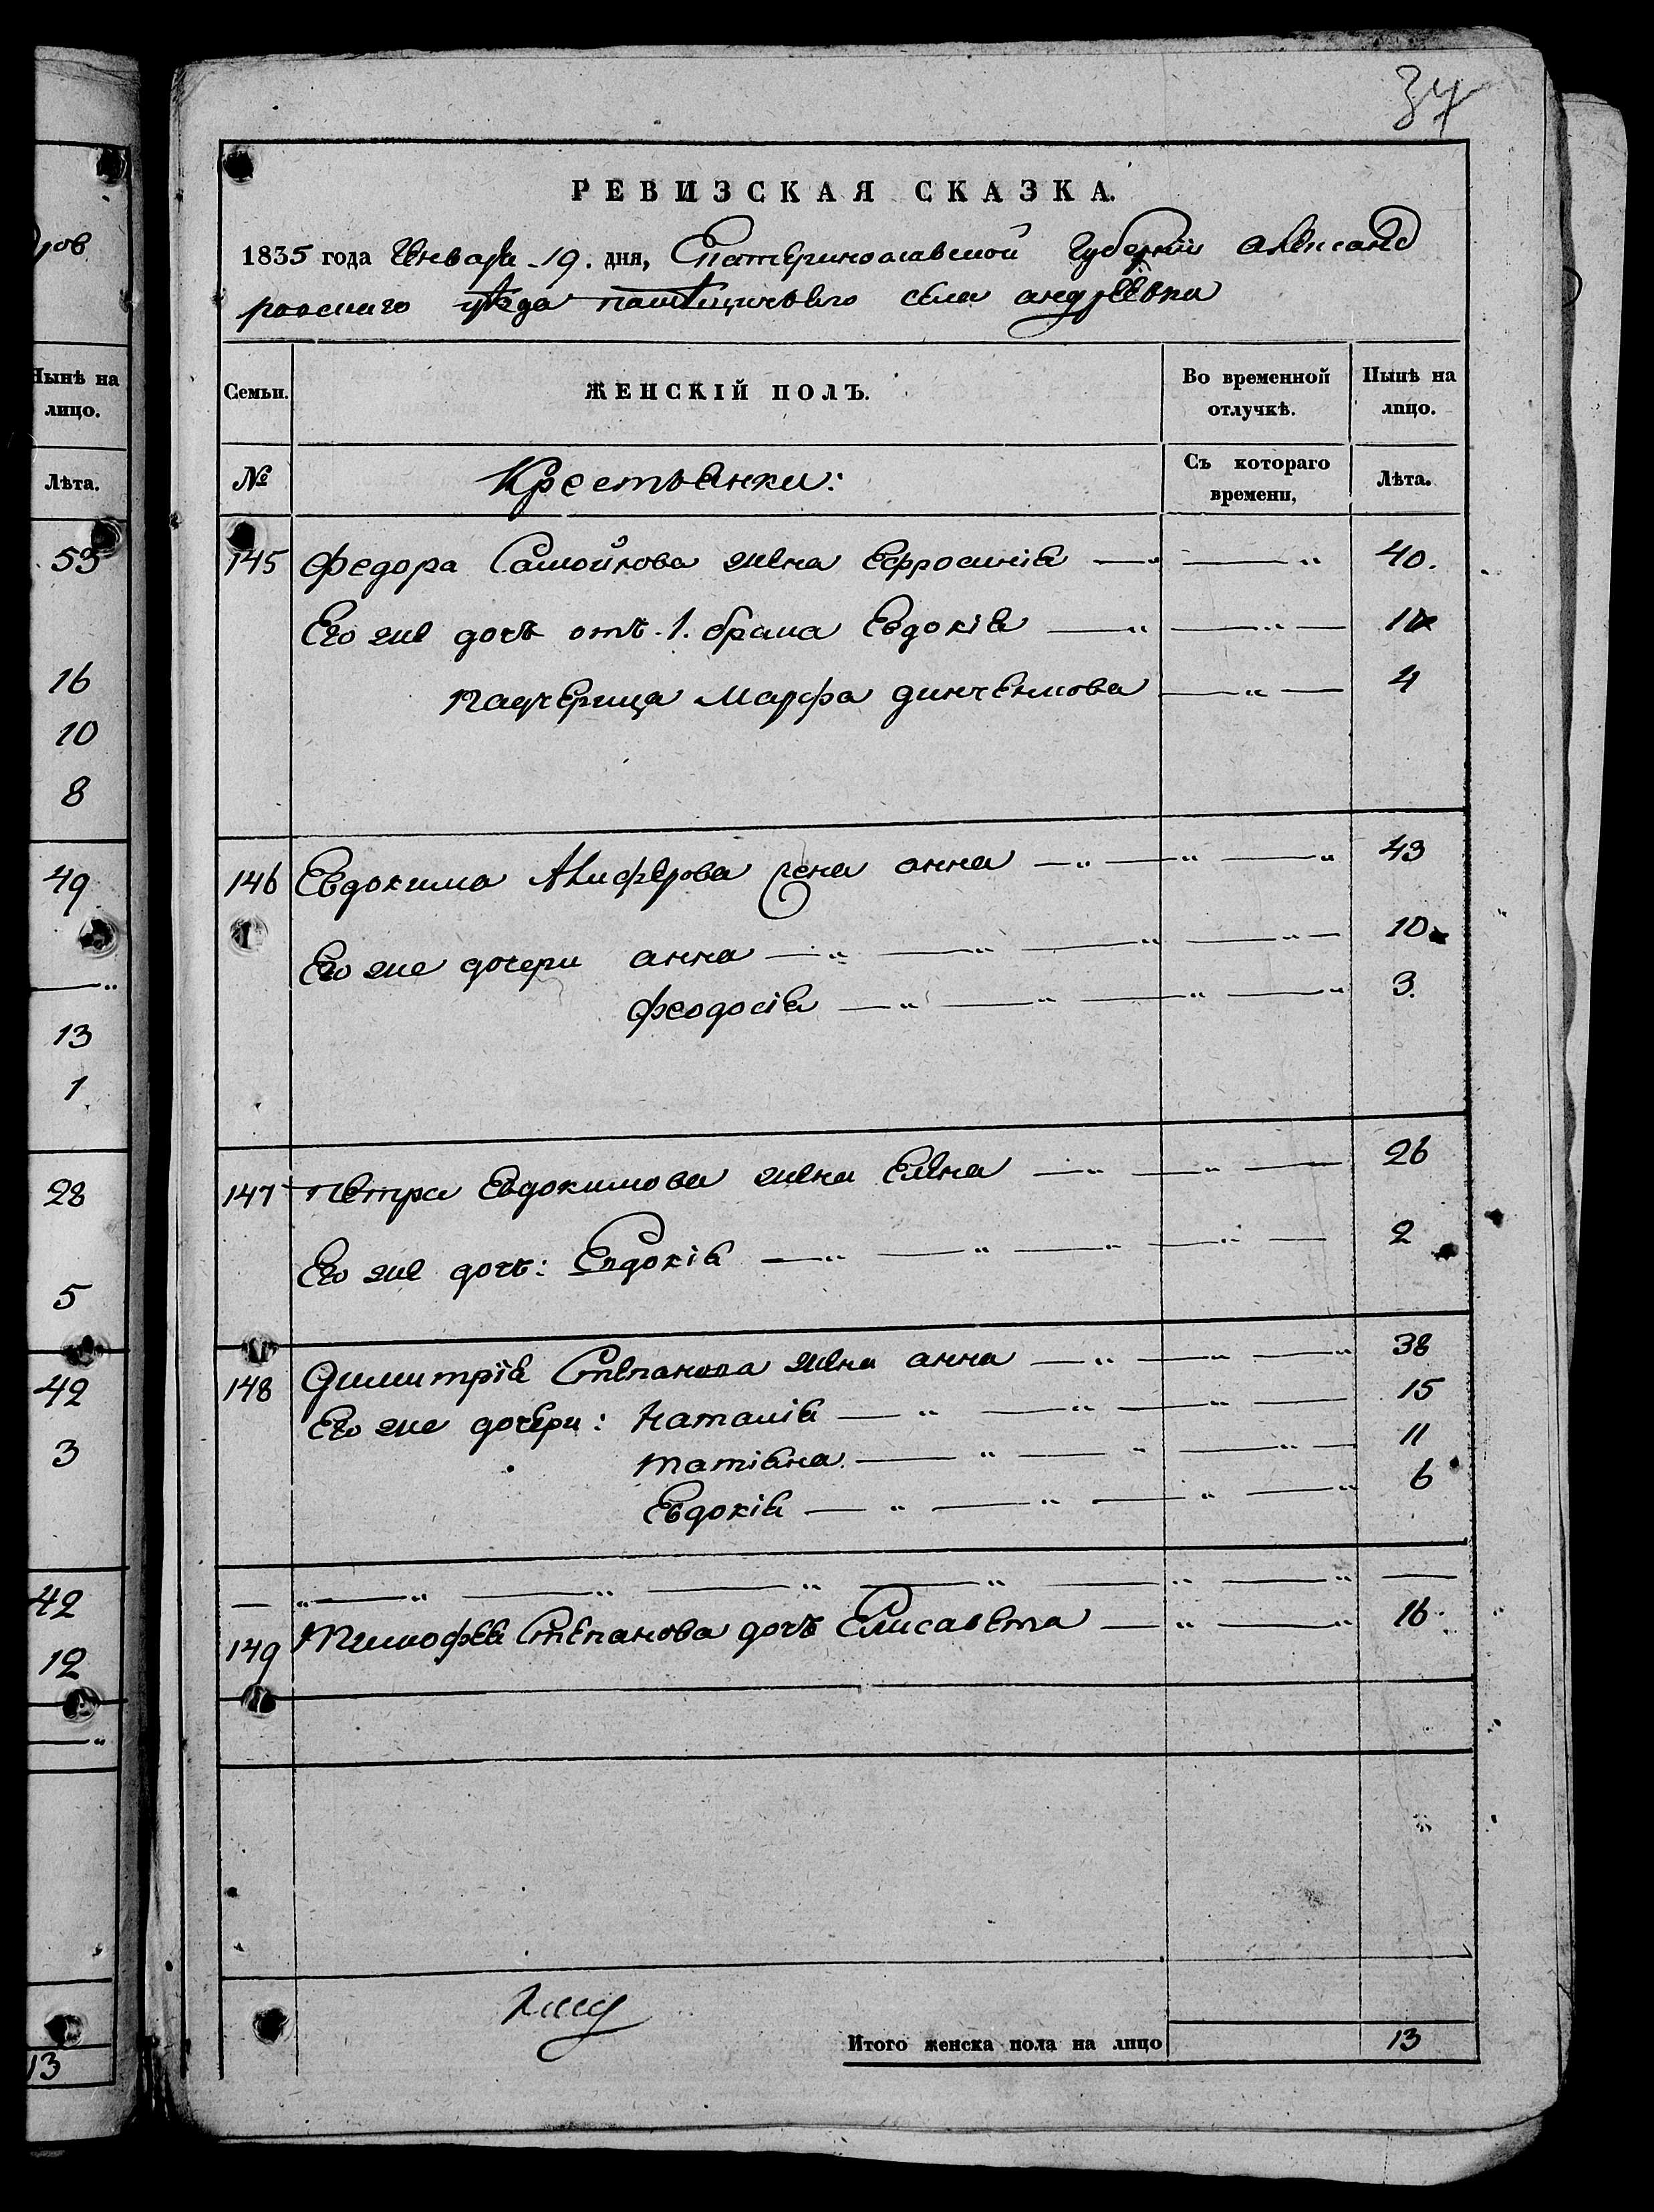 37
РЕВИЗСКАЯ СКАЗКА.
1835 года Января 19. дня, Екатеринославской Губернiи Александ
ровскаго уѣзда помѣщичьяго села андрѣевки
Семьи. ЖЕНСКІЙ ПОЛЪ. Во временной отлучкѣ. Нынѣ на лицо.
№ Крестьянки: Съ котораго времени, Лѣта.
145 Федора Самойлова жена Ефросинія 40.
Его же дочь отъ 1. брака Евдокія
Падчерица Марфа 4
146 Евдокима Алиферова жена анна 43
Его же дочери анна 10
Феодосія 3.
147 Петра Евдокимова жена Елена 26
Его же дочь: Евдокія 2
148 Димитрія Степанова жена анна 38
Его же дочери: Наталія 15
Татіяна 11
Евдокія 6
149 Тимофѣя Степанова дочь Елисавета 16
Итого женска пола на лицо 13
ров
Нынѣ на
лицо.
Лѣта.
53
16
10
8
49
13
1
28
5
42
3
42
12
13